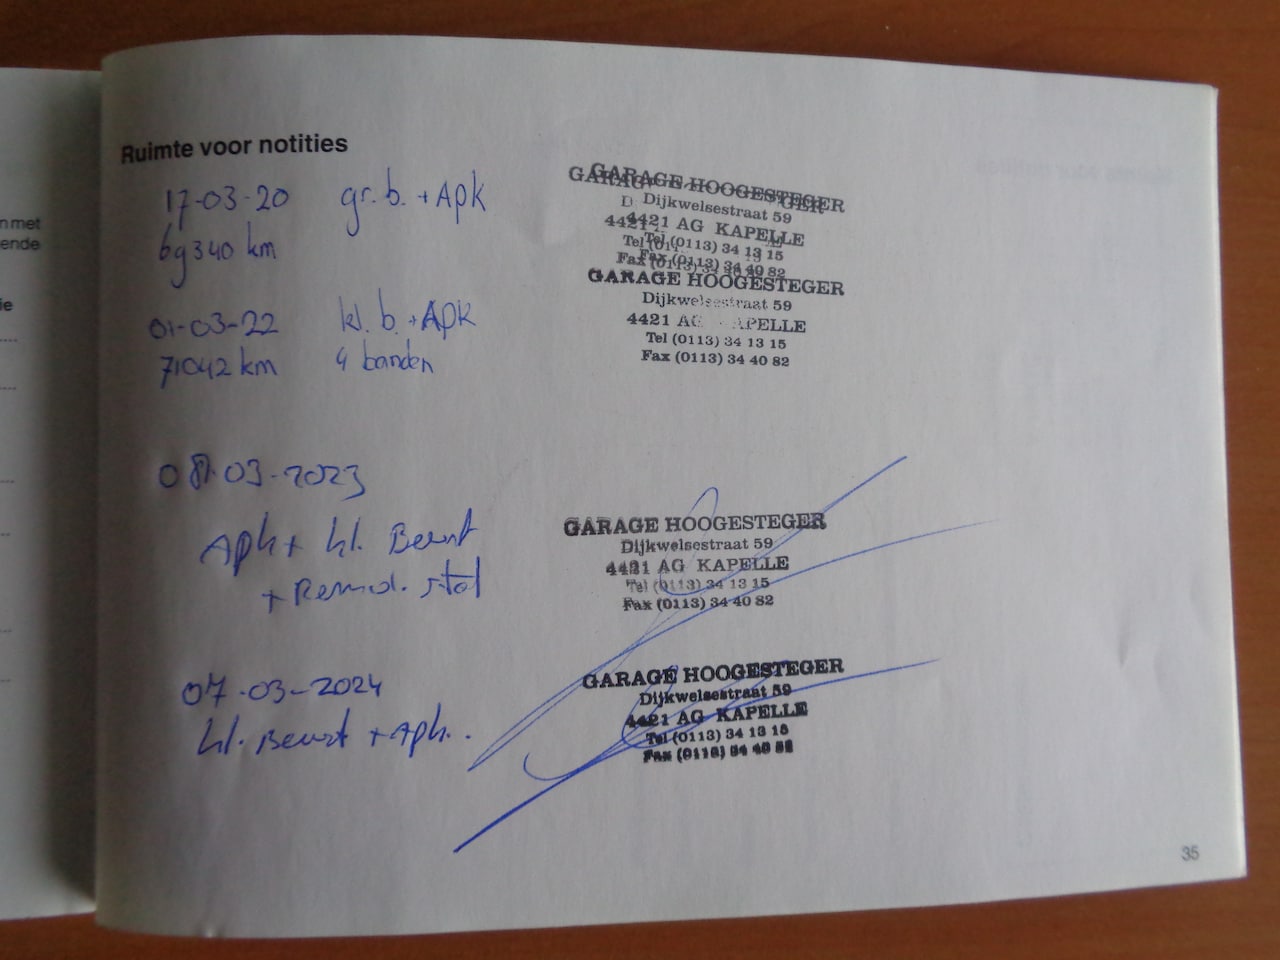 n met
ende
ie
Ruimte voor notities
17-03-20 gr. b. + Apk
69340 km
GARAGE HOOGESTEGER
Dijkwelsestraat 59
4421 AG KAPELLE
Tel (0113) 34 13 15
Fax (0113) 34 40 82
01-03-22 kl. b. + Apk
71042 km 4 banden
GARAGE HOOGESTEGER
Dijkwelsestraat 59
4421 AG KAPELLE
Tel (0113) 34 13 15
Fax (0113) 34 40 82
08-03-2023
Apk + kl. Beurt
+ Remol. stol
GARAGE HOOGESTEGER
Dijkwelsestraat 59
4421 AG KAPELLE
Tel (0113) 34 13 15
Fax (0113) 34 40 82
07-03-2024
kl. Beurt + Apk.
GARAGE HOOGESTEGER
Dijkwelsestraat 59
4421 AG KAPELLE
Tel (0113) 34 13 15
Fax (0113) 34 40 82
35